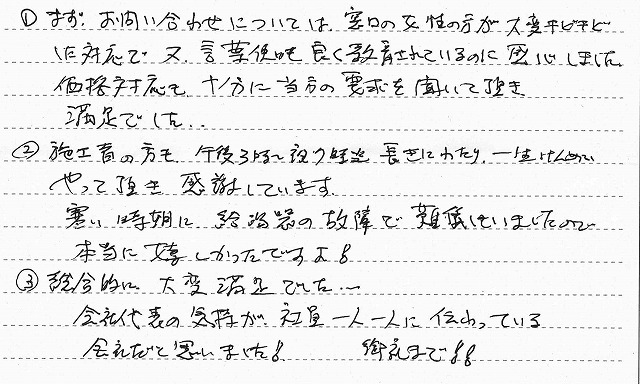 ① まず、お問い合わせについては、窓口の女性の方が大変キビキビ
した対応で又、言葉使いも良く教育されているのに感心しました。
価格対応も、十分に当方の要求を聞いて頂き
満足でした..
② 施工者の方も、午後3時〜夜9時迄長きにわたり、一生けんめい
やって頂き感謝しています。
寒い時期に給湯器の故障で難儀していましたので
本当に嬉しかったですよ!
③ 総合的に、大変満足でした...
会社代表の気持が、社員一人一人に伝わっている
会社だと思いました! 御礼まで!!